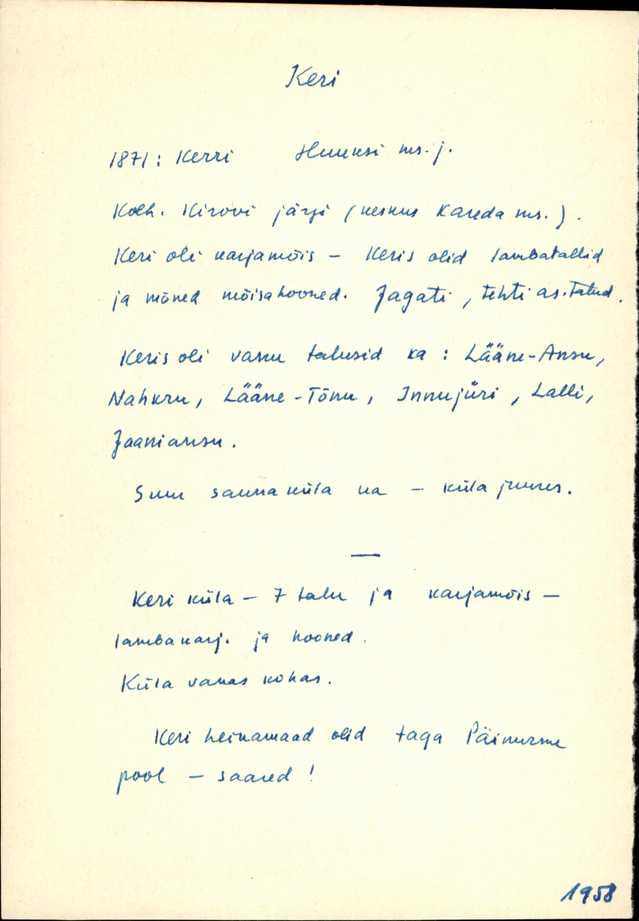 Keri
1871: Kerri Huuksi ms. j.
Kolh. Kirovi järgi (keskus Kareda ms.).
Keri oli karjamõis – Keris olid lambatallid
ja mõned mõisahooned. Jagati, tehti as. talud.
Keris oli vanu talusid ka: Lääne-Ansu,
Nahkru, Lääne-Tõnu, Innujüri, Lalli,
Jaaniansu.
Suur saunaküla ka – küla juures.
—
Keri küla – 7 talu ja karjamõis –
lambakarj. ja hooned.
Küla vanas kohas.
Keri heinamaad olid taga Päinurme
pool – saared!
1958